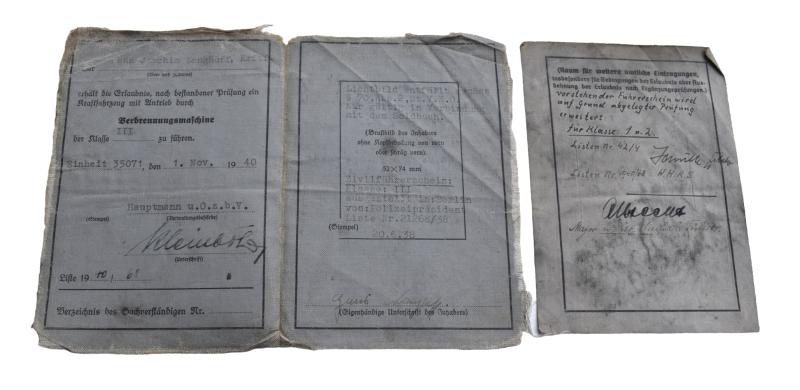 Joachim
(Vor- und Zuname)
erhält die Erlaubnis, nach bestandener Prüfung ein
Kraftfahrzeug mit Antrieb durch
Verbrennungsmaschine
der Klasse III zu führen.
Einheit 35071, den 1. Nov. 1940
Hauptmann u.O.z.b.V.
(Stempel) (Verwaltungsbehörde)
(Unterschrift)
Liste 19
Verzeichnis des Sachverständigen Nr.
Lichtbild entfällt
Nur gültig in Verbindung
mit dem Soldbuch.
(Brustbild des Inhabers
ohne Kopfbedeckung von vorn
oder schräg vorn)
52×74 mm
Zivilführerschein:
Klasse: III
ausgestellt in: Berlin
von: Polizeipräsident
Liste Nr. 21268/38
(Stempel)
20.6.38
(Eigenhändige Unterschrift des Inhabers)
(Raum für weitere amtliche Eintragungen,
insbesondere für Bedingungen der Erlaubnis oder Aus-
dehnung der Erlaubnis nach Ergänzungsprüfungen.)
Vorstehender Führerschein wird
auf Grund abgelegter Prüfung
erweitert
für Klasse 1 u. 2.
Listen Nr. 42/4
Listen Nr.
Major